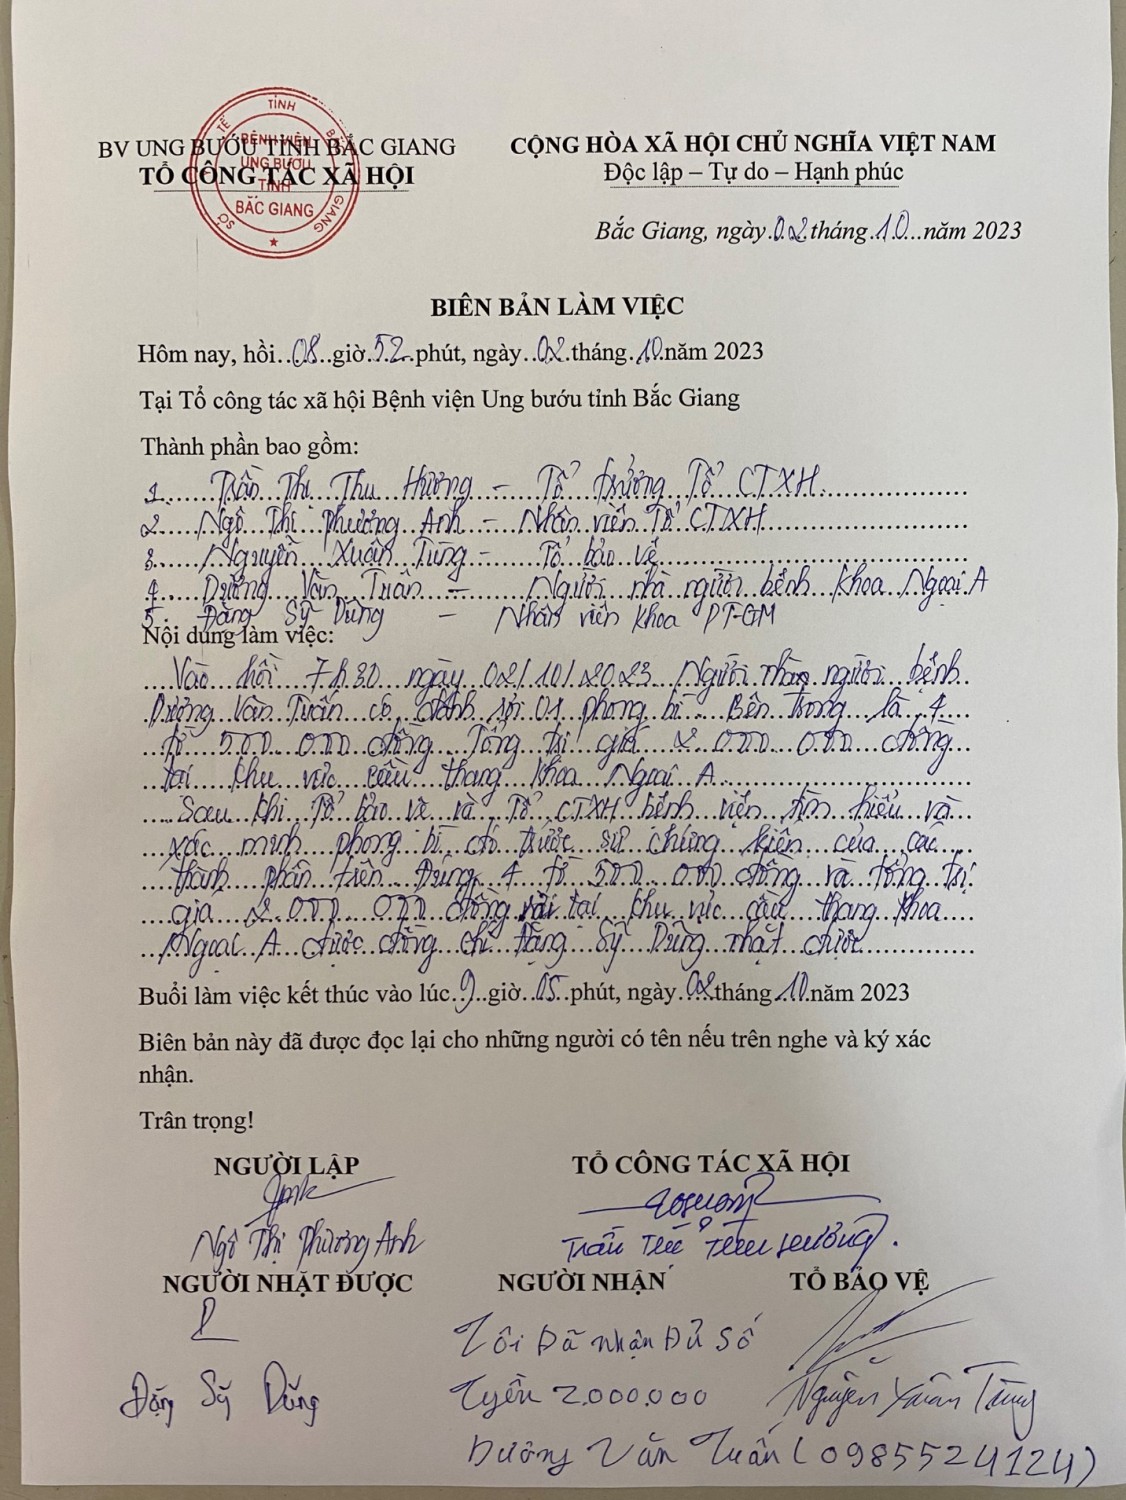 BV UNG BƯỚU TỈNH BẮC GIANG
TỔ CÔNG TÁC XÃ HỘI
SỞ Y TẾ TỈNH BẮC GIANG
BỆNH VIỆN
UNG BƯỚU
TỈNH
BẮC GIANG
CỘNG HÒA XÃ HỘI CHỦ NGHĨA VIỆT NAM
Độc lập – Tự do – Hạnh phúc
Bắc Giang, ngày 02 tháng 10 năm 2023
BIÊN BẢN LÀM VIỆC
Hôm nay, hồi 08 giờ 52 phút, ngày 02 tháng 10 năm 2023
Tại Tổ công tác xã hội Bệnh viện Ung bướu tỉnh Bắc Giang
Thành phần bao gồm:
1. Trần Thị Thu Hương – Tổ trưởng Tổ CTXH
2. Ngô Thị Phương Anh – Nhân viên Tổ CTXH
3. Nguyễn Xuân Tùng – Tổ bảo vệ
4. Dương Văn Tuấn – Người nhà người bệnh khoa Ngoại A
5. Đặng Sỹ Dũng – Nhân viên khoa PT-GM
Nội dung làm việc:
Vào hồi 7h30 ngày 02/10/2023 Người nhà người bệnh
Dương Văn Tuấn có đánh rơi 01 phong bì. Bên trong là 4
tờ 500.000 đồng Tổng trị giá 2.000.000 đồng
tại khu vực cầu thang khoa Ngoại A
Sau khi Tổ bảo vệ và Tổ CTXH bệnh viện tìm hiểu và
xác minh phong bì đó trước sự chứng kiến của các
thành phần trên. Đúng 4 tờ 500.000 đồng và tổng trị
giá 2.000.000 đồng rơi tại khu vực cầu thang khoa
Ngoại A được đồng chí Đặng Sỹ Dũng nhặt được
Buổi làm việc kết thúc vào lúc 9 giờ 05 phút, ngày 02 tháng 10 năm 2023
Biên bản này đã được đọc lại cho những người có tên nếu trên nghe và ký xác
nhận.
Trân trọng!
NGƯỜI LẬP
TỔ CÔNG TÁC XÃ HỘI
Ngô Thị Phương Anh
Trần Thị Thu Hương.
NGƯỜI NHẶT ĐƯỢC
NGƯỜI NHẬN
TỔ BẢO VỆ
Tôi Đã nhận Đủ Số
Tyền 2.000.000
Dương Văn Tuấn (0985524124)
Đặng Sỹ Dũng
Nguyễn Xuân Tùng